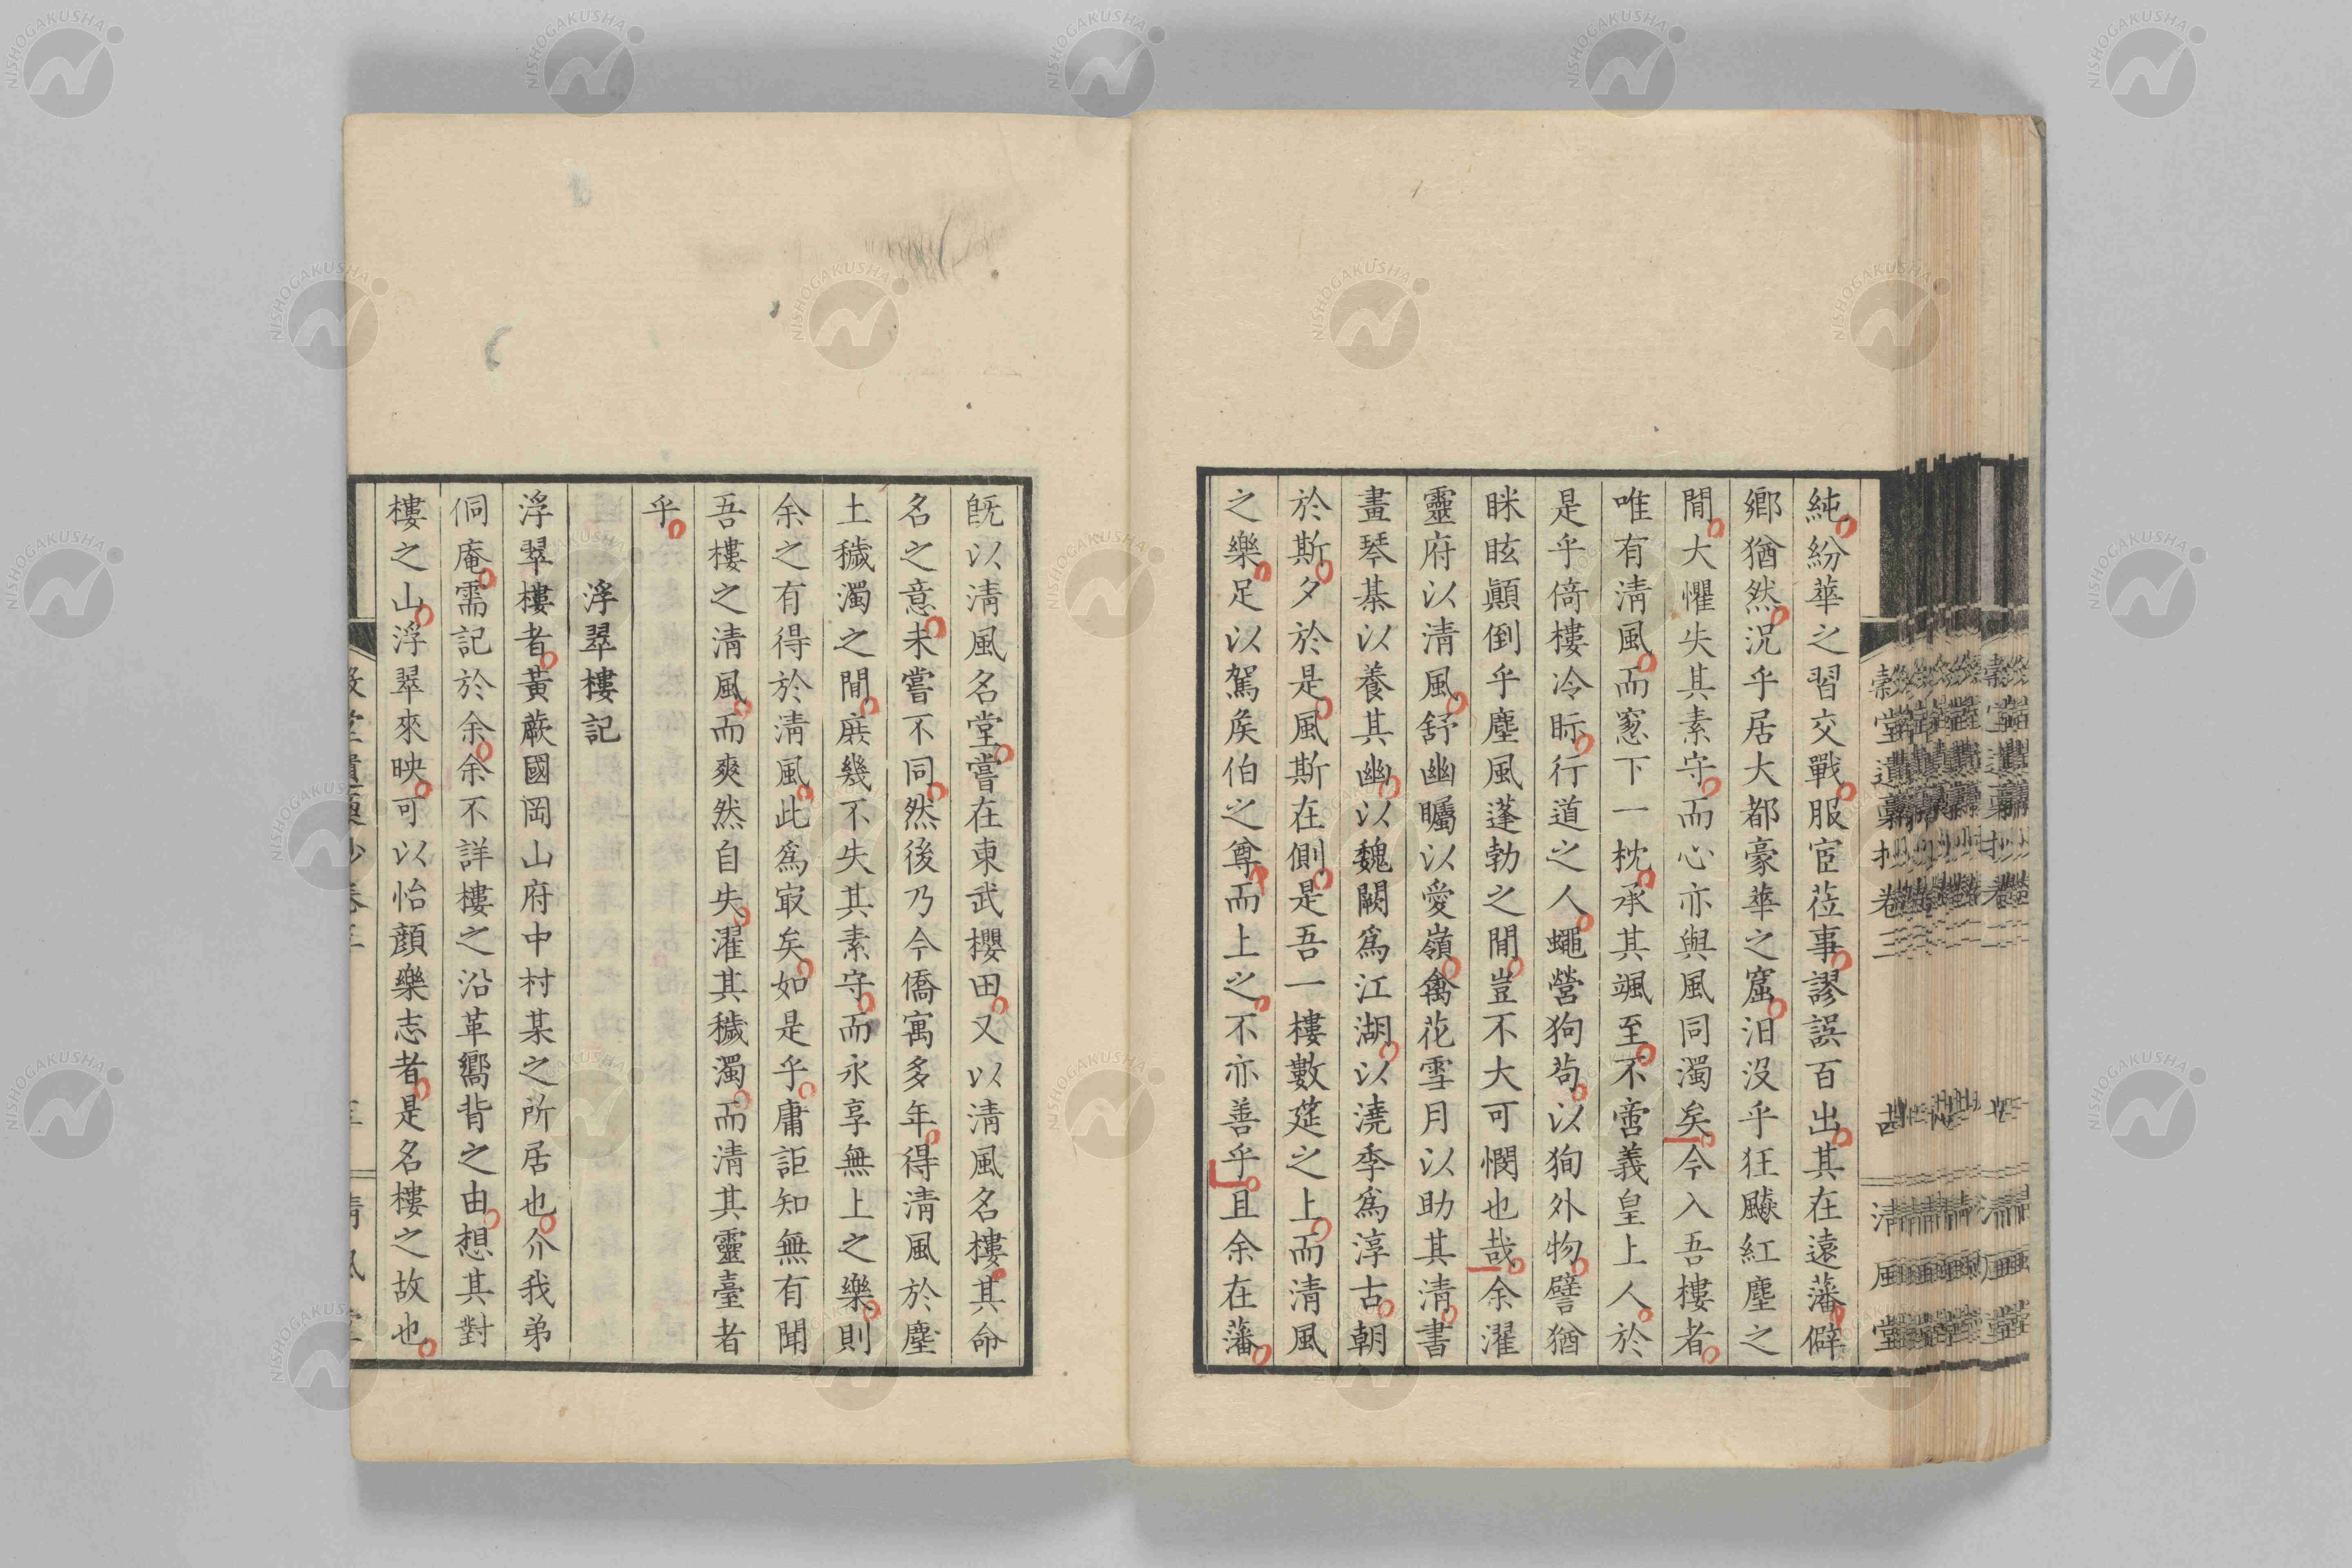 純紛華之習交戰服宦莅事謬誤百出其在遠藩僻
鄉猶然況乎居大都豪華之窟汩没乎狂飇紅塵之
間大懼失其素守而心亦與風同濁矣今入吾樓者
唯有清風而窓下一枕承其颯至不啻義皇上人於
是乎倚樓冷眎行道之人蠅營狗苟以狥外物譬猶
眯眩顛倒乎塵風蓬勃之間豈不大可憫也哉余濯
靈府以清風舒幽矚以愛嶺禽花雪月以助其清書
畫琴棊以養其幽以魏闕爲江湖以澆季爲淳古朝
於斯夕於是風斯在側是吾一樓數莚之上而清風
之樂足以駕矦伯之尊而上之不亦善乎且余在藩
既以清風名堂嘗在東武櫻田又以清風名樓其命
名之意未嘗不同然後乃今僑寓多年得清風於塵
土穢濁之間庶幾不失其素守而永享無上之樂則
余之有得於清風此爲㝡矣如是乎庸詎知無有聞
吾樓之清風而爽然自失濯其穢濁而清其靈臺者
乎
浮翠樓記
浮翠樓者黃蕨國岡山府中村某之所居也介我弟
侗庵需記於余余不詳樓之沿革嚮背之由想其對
樓之山浮翠來映可以怡顏樂志者是名樓之故也
穀堂遺稾抄卷三
清風堂